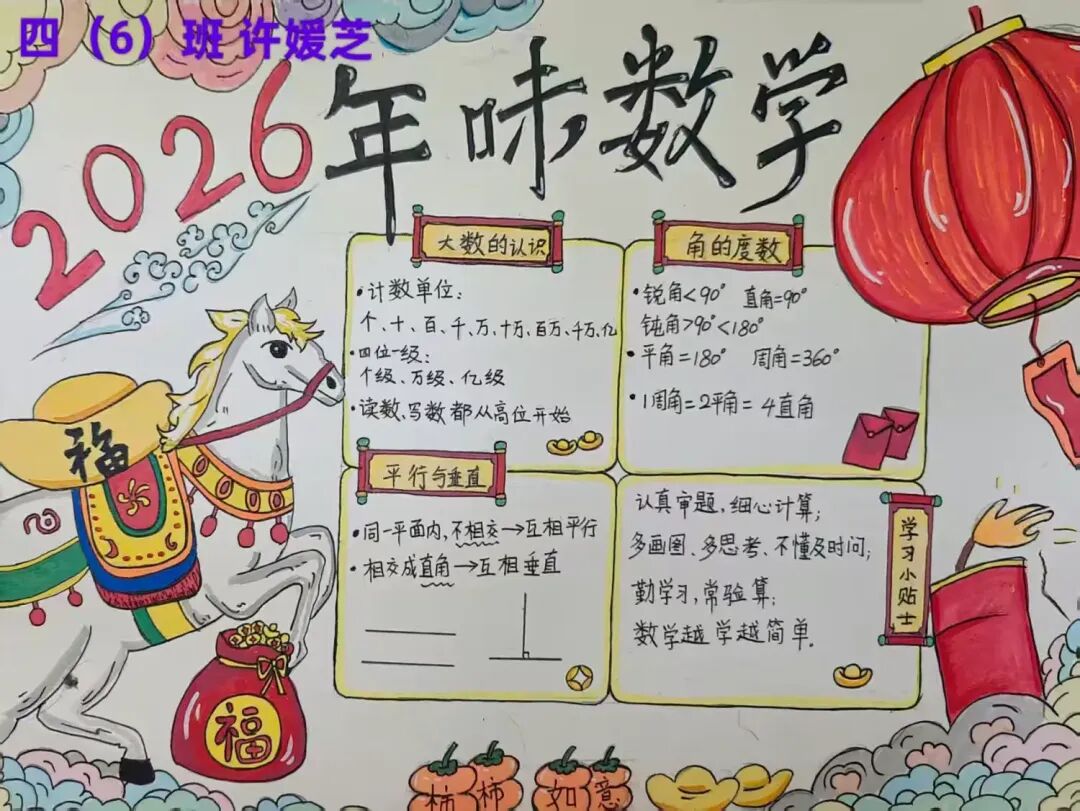 四（6）班 许媛芝
2026
年味数学
大数的认识
•计数单位：
个、十、百、千、万、十万、百万、千万、亿
•四位一级：
个级、万级、亿级
•读数、写数都从高位开始
角的度数
•锐角<90° 直角=90°
钝角>90°<180°
•平角=180° 周角=360°
•1周角=2平角=4直角
平行与垂直
•同一平面内,不相交→互相平行
•相交成直角→互相垂直
学习小贴士
认真审题,细心计算;
多画图、多思考、不懂及时问;
勤学习,常验算;
数学越学越简单.
福
福
柿柿如意